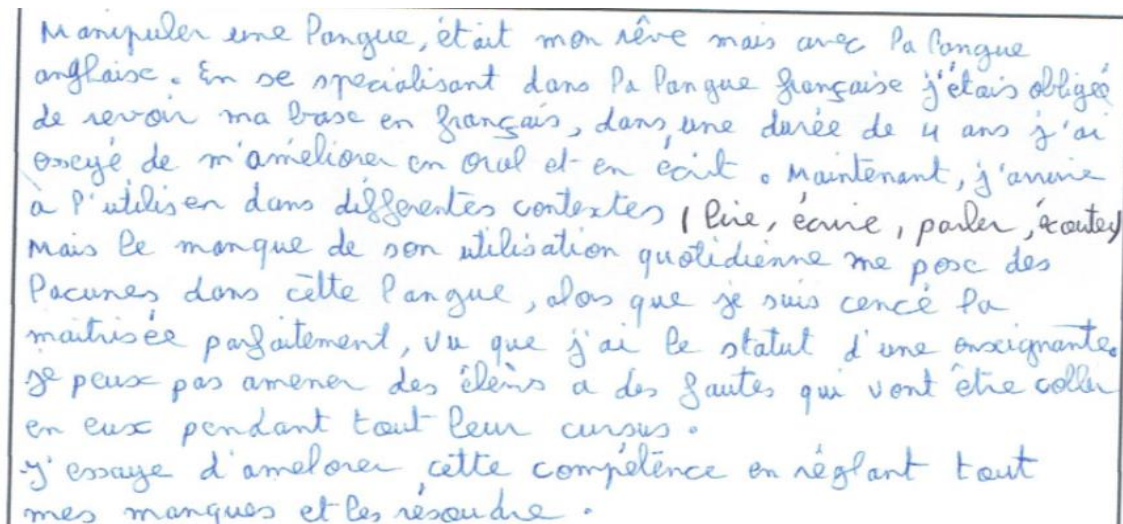 Manipuler une langue, était mon rêve mais avec la langue
anglaise. En se specialisant dans la langue française j'étais obligée
de revoir ma base en français, dans une durée de 4 ans j'ai
essayé de m'améliorer en oral et en écrit. Maintenant, j'arrive
à l'utiliser dans différentes contextes (lire, écrire, parler, écouter)
Mais le manque de son utilisation quotidienne me pose des
lacunes dans cette langue, alors que je suis cencé la
maitrisée parfaitement, vu que j'ai le statut d'une enseignante.
je peux pas amener des élèves a des fautes qui vont être coller
en eux pendant tout leur cursus.
J'essaye d'amelorer cette compétence en réglant tout
mes manques et les résoudre.